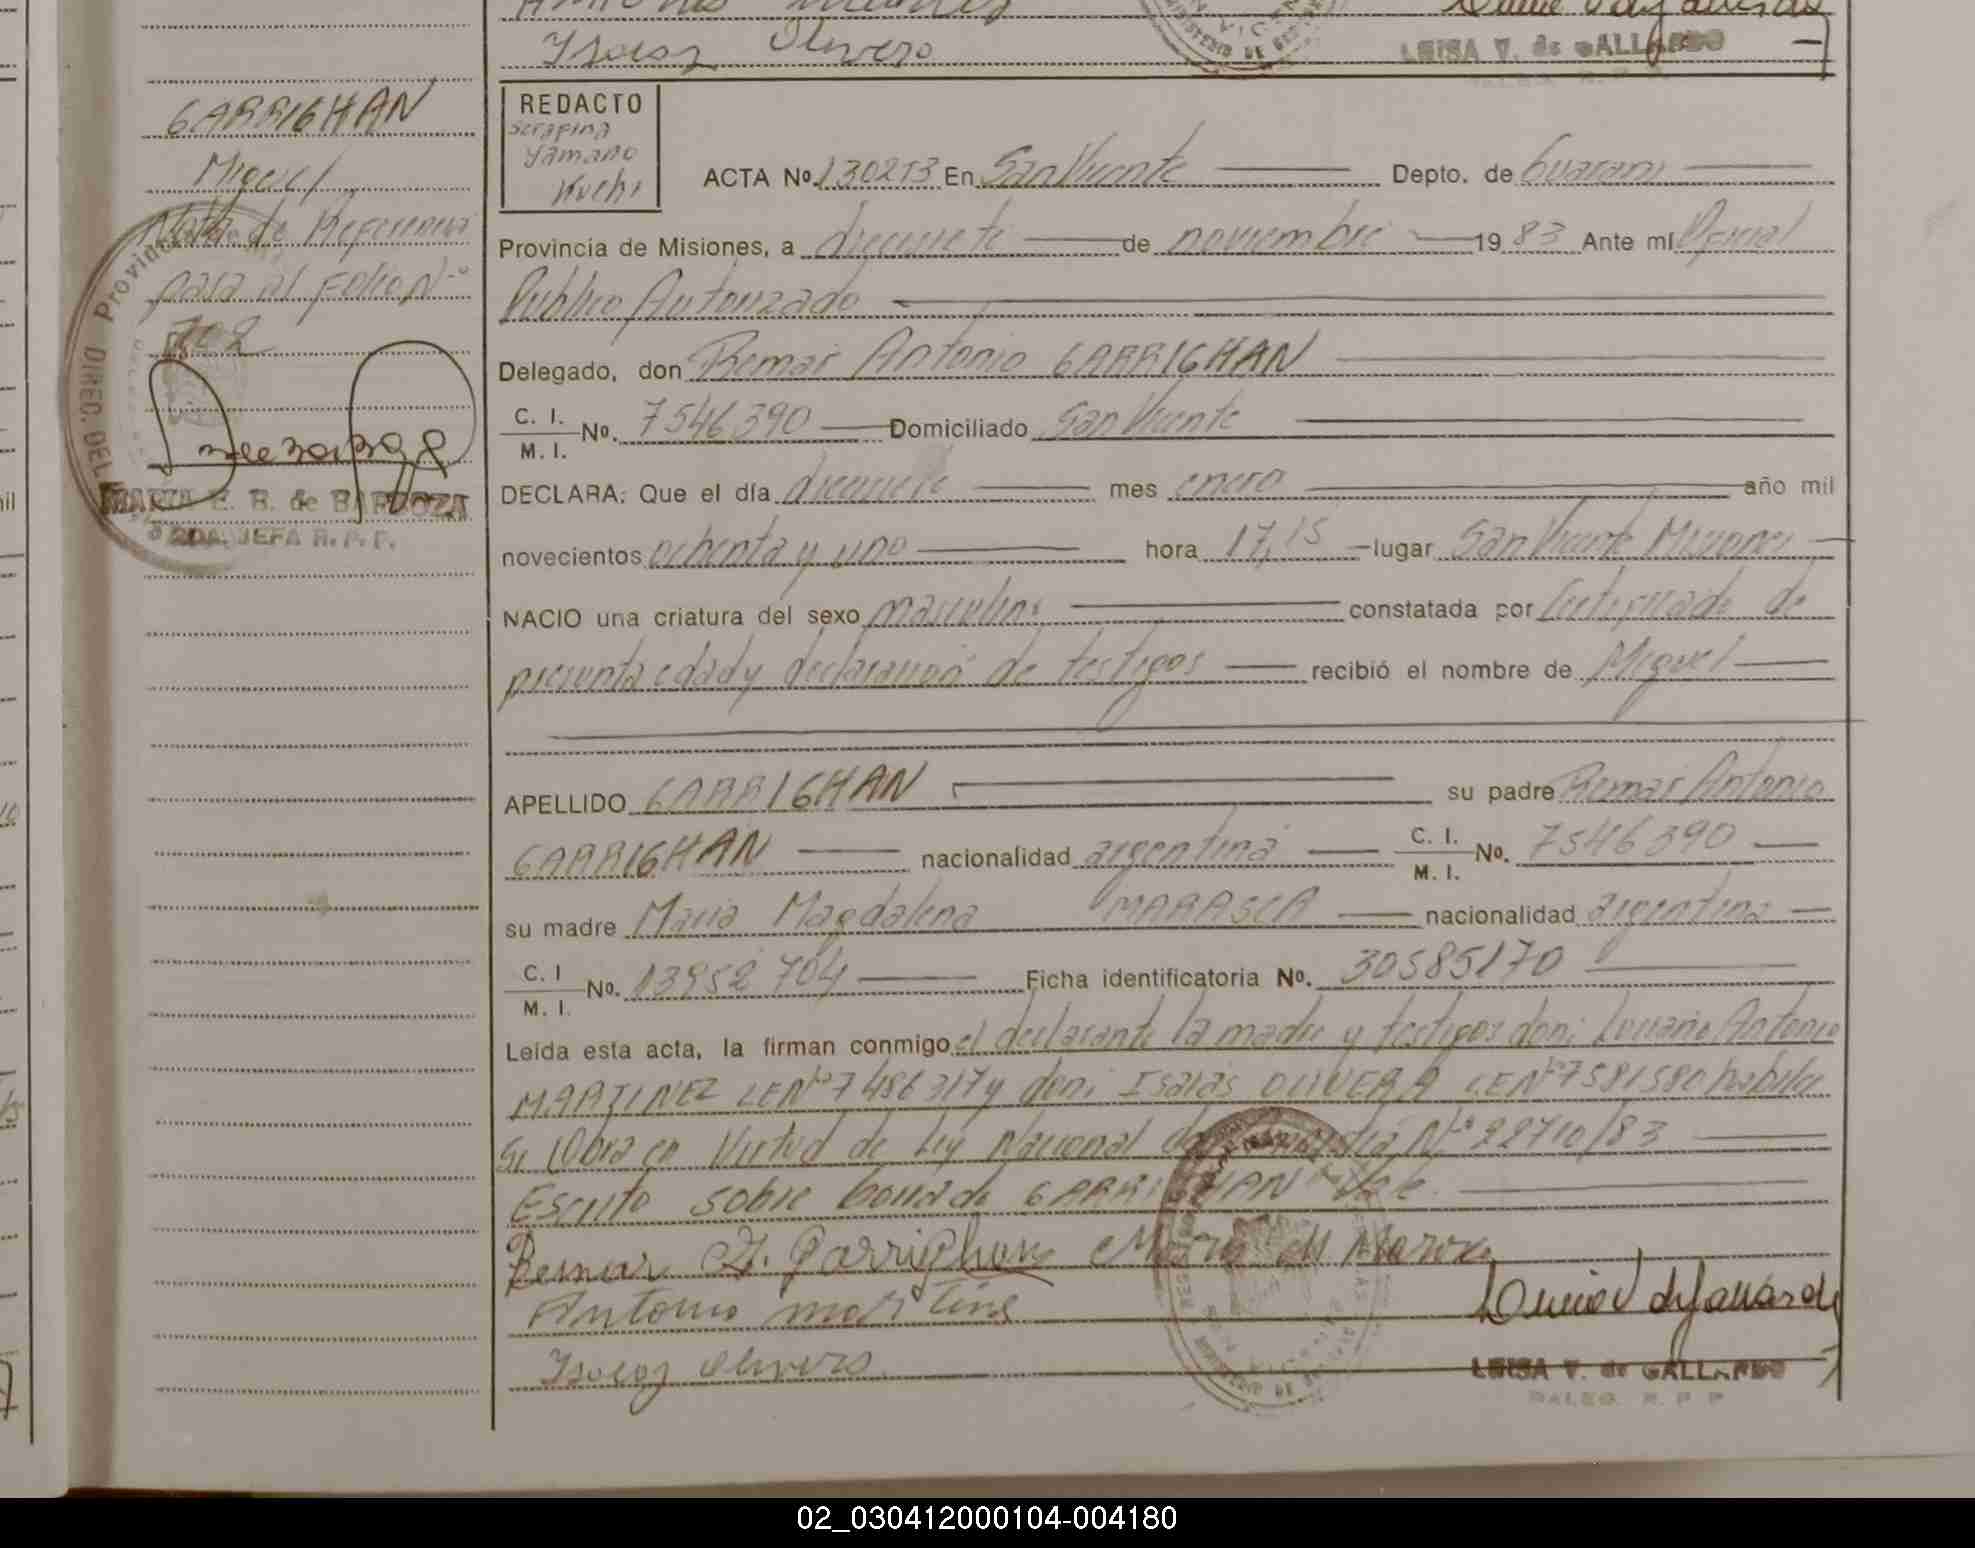 Isaias Olivera
LUISA V. de GALLARDO
GARRIGHAN
Miguel
Nota de Referencia
pasa al Folio Nº
702
Provinc
DIREC. DEL
MARTA E. B. de BARBOZA
2DA. JEFA R. P. P.
REDACTO
Serafina
Yamano
Kuchi
ACTA Nº. 130213 En San Vicente Depto. de Guaraní
Provincia de Misiones, a diecisiete de noviembre 1983 Ante mí Oficial
Público Autorizado
Delegado, don Remar Antonio GARRIGHAN
C. I.
M. I. Nº. 7546390 Domiciliado San Vicente
DECLARA: Que el día diecisiete mes enero año mil
novecientos ochenta y uno hora 17,15 lugar San Vicente Misiones
NACIO una criatura del sexo masculino constatada por Certificado de
presunta edad y declaración de testigos recibió el nombre de Miguel
APELLIDO GARRIGHAN su padre Remar Antonio
GARRIGHAN nacionalidad argentina C. I. M. I. Nº. 7546390
su madre Maria Magdalena MARASCA nacionalidad argentina
C. I M. I. Nº. 13952704 Ficha identificatoria Nº. 30585170
Leída esta acta, la firman conmigo el declarante la madre y testigos don: Luciano Antonio
MARTINEZ LE Nº 7486317 y don: Isaias OLIVERA LE Nº 7581580 habilita
se libra en Virtud de Ley Nacional de Amnistia Nº 22710/83
Escrito sobre borrado GARRIGHAN Vale.
Remar A. Garrighan Maria M Marasca
Antonio martines
Isaias Olivera
LUISA V. de GALLARDO
DALEG. R. P. P
02_030412000104-004180